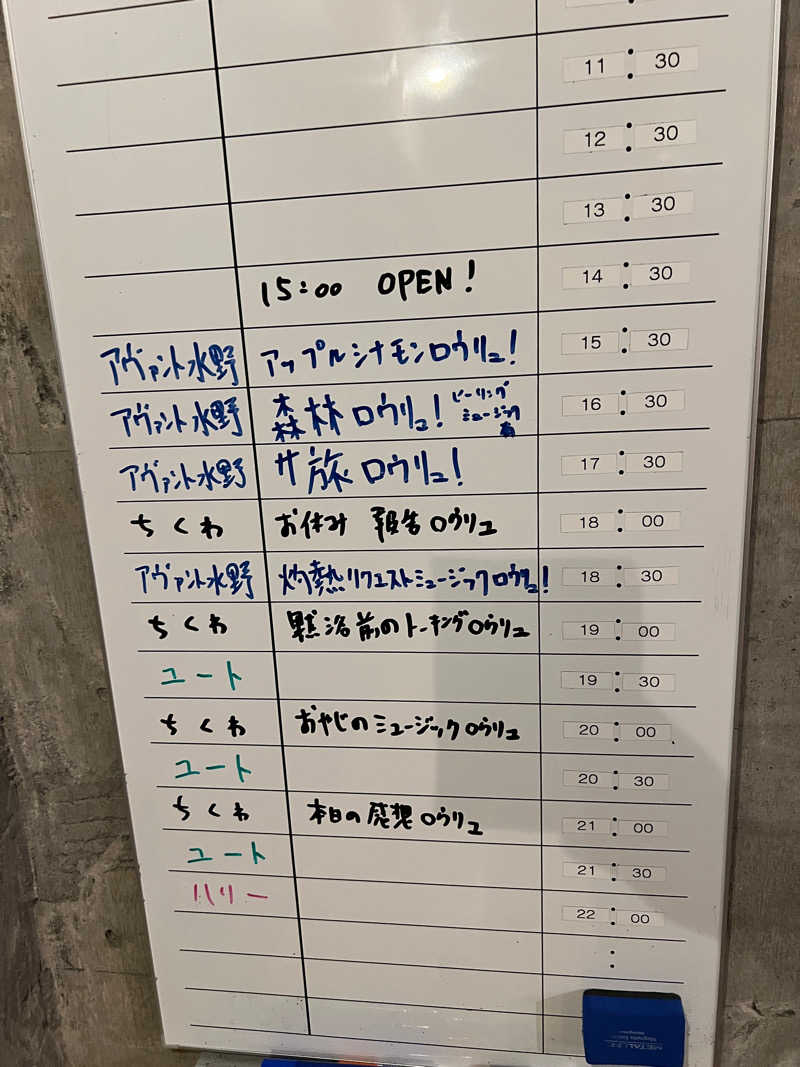 11 : 30
12 : 30
13 : 30
15:00 OPEN! 14 : 30
アヴァント水野 アップルシナモンロウリュ! 15 : 30
アヴァント水野 森林ロウリュ! ヒーリングミュージック有 16 : 30
アヴァント水野 サ旅ロウリュ! 17 : 30
ちくわ お休み 報告ロウリュ 18 : 00
アヴァント水野 灼熱リクエストミュージックロウリュ! 18 : 30
ちくわ 黙浴前のトーキングロウリュ 19 : 00
ユート 19 : 30
ちくわ おやじのミュージックロウリュ 20 : 00
ユート 20 : 30
ちくわ 本日の感想ロウリュ 21 : 00
ユート 21 : 30
ハリー 22 : 00
: